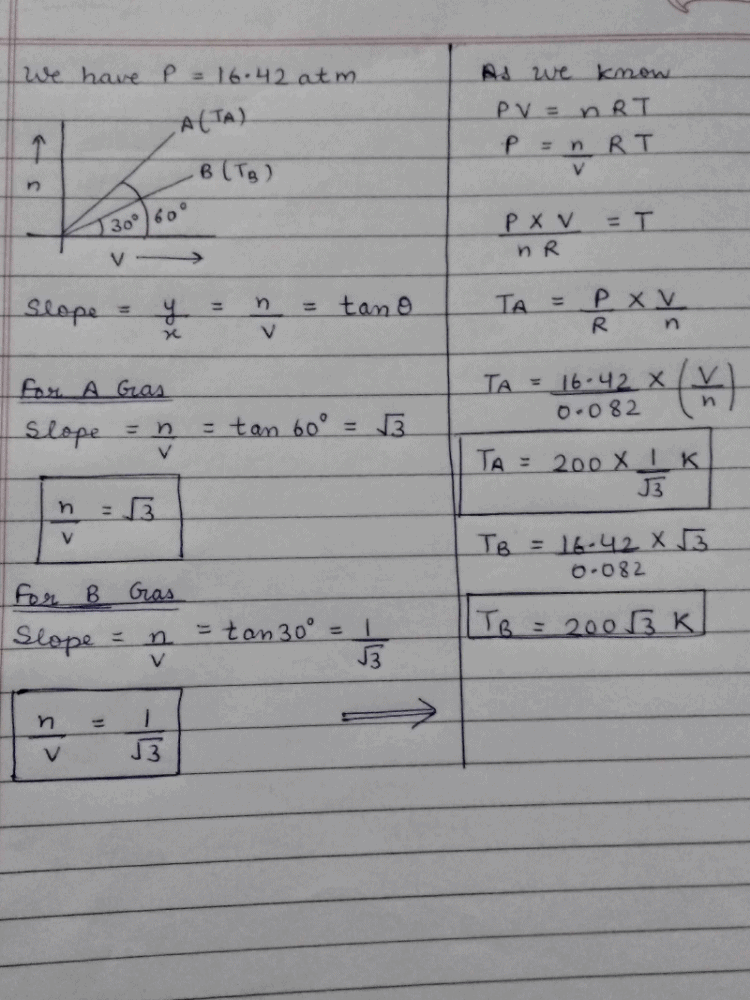 We have P = 16.42 atm
A (TA)
B (TB)
n
30° 60°
V →
Slope = y/x = n/V = tan θ
For A Gas
Slope = n/V = tan 60° = √3
n/V = √3
For B Gas
Slope = n/V = tan 30° = 1/√3
n/V = 1/√3
⇒
As we know
PV = nRT
P = n/V RT
P × V / nR = T
TA = P/R × V/n
TA = 16.42/0.082 × (V/n)
TA = 200 × 1/√3 K
TB = 16.42/0.082 × √3
TB = 200√3 K